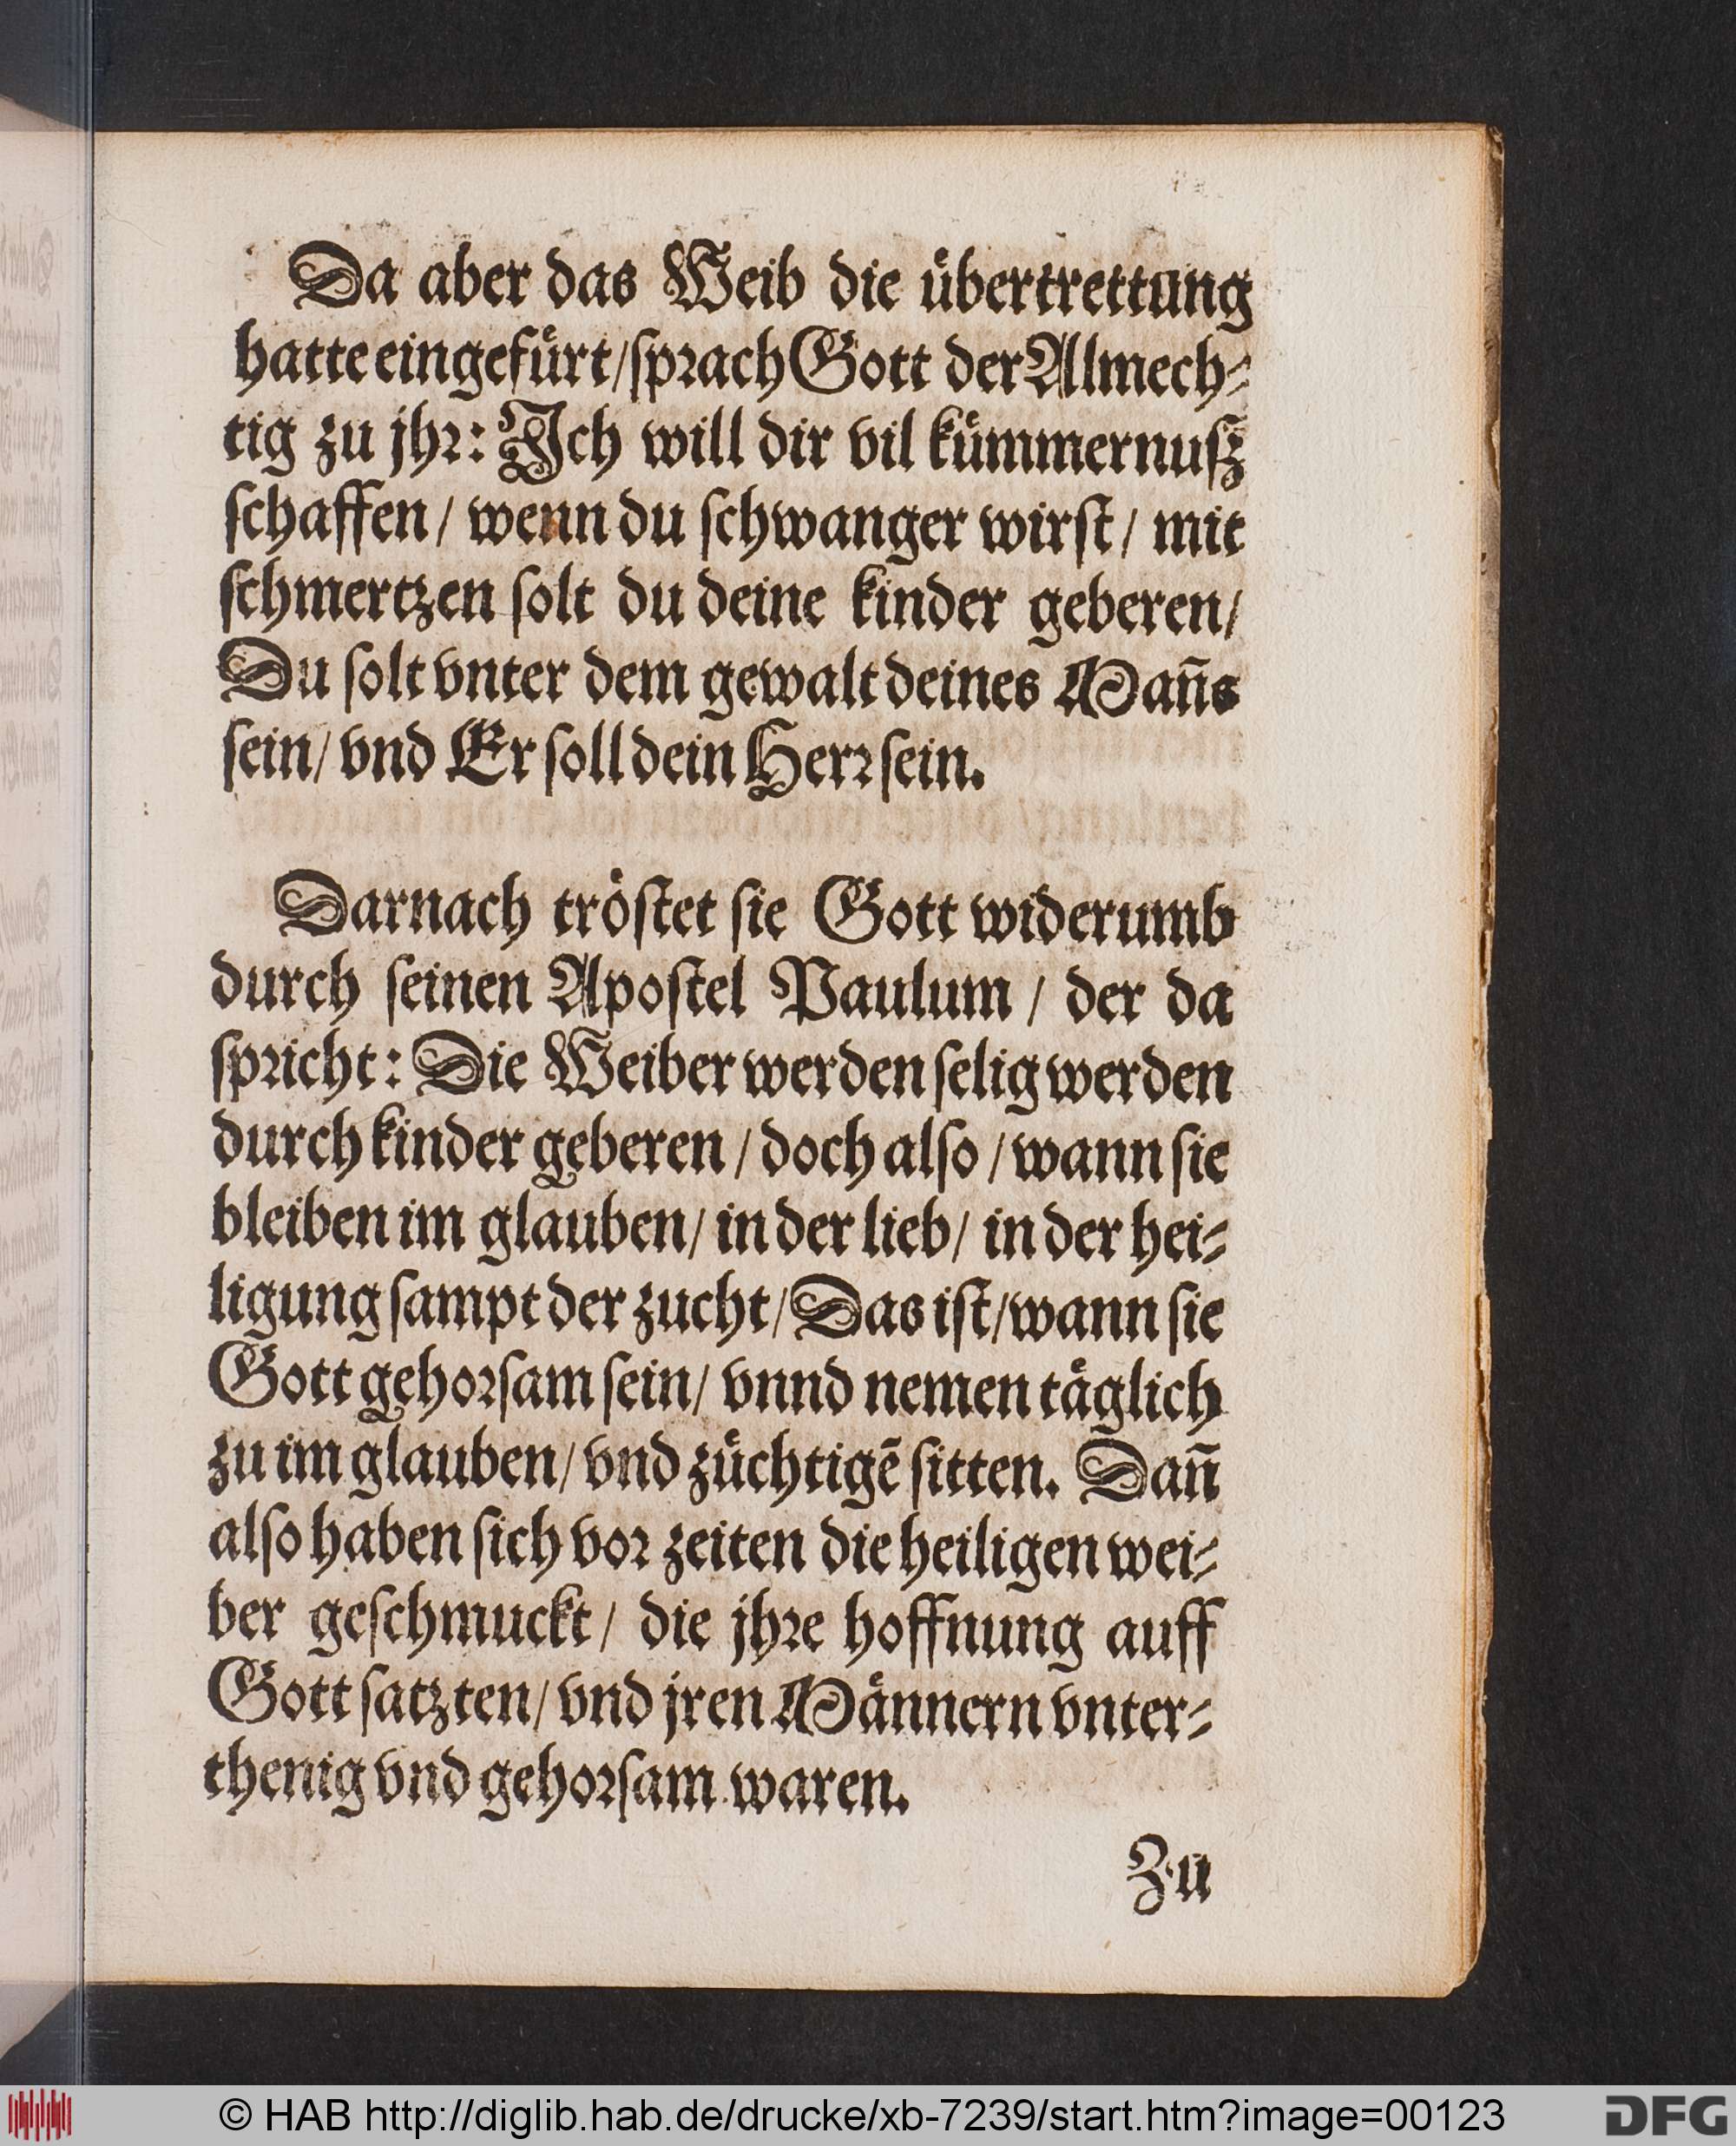 Da aber das Weib die uͤbertrettung
hatte eingefuͤrt/ſpꝛach Gott der Almech⸗
tig zu jhꝛ: Ich will dir vil kuͤmmernuſz
ſchaffen/ wenn du ſchwanger wirſt/ mit
ſchmertzen ſolt du deine kinder geberen/
Du ſolt vnter dem gewalt deines Man̄s
ſein/ vnd Er ſoll dein Herꝛ ſein.
Darnach troͤſtet ſie Gott widerumb
durch ſeinen Apoſtel Paulum / der da
ſpꝛicht: Die Weiber werden ſelig werden
durch kinder geberen / doch alſo / wann ſie
bleiben im glauben/ in der lieb/ in der hei⸗
ligung ſampt der zucht/ Das iſt/wann ſie
Gott gehoꝛſam ſein/ vnnd nemen taͤglich
zu im glauben/ vnd zuͤchtigē ſitten. Dan̄
alſo haben ſich voꝛ zeiten die heiligen wei⸗
ber geſchmuckt/ die jhꝛe hoffnung auff
Gott ſatzten/ vnd jren Maͤnnern vnter⸗
thenig vnd gehoꝛſam waren.
Zu
© HAB http://diglib.hab.de/drucke/xb-7239/start.htm?image=00123
DFG